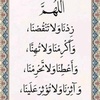 اللَّهُمَّ
زِدْنَا وَلَا تَنْقُصْنَا،
وَأَكْرِمْنَا وَلَا تُهِنَّا،
وَأَعْطِنَا وَلَا تَحْرِمْنَا،
وَآثِرْنَا وَلَا تُؤْثِرْ عَلَيْنَا،